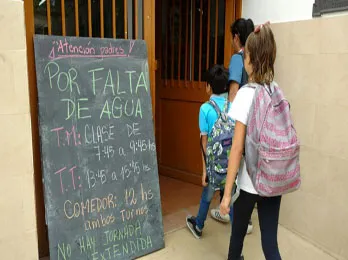 ¡Atención padres!
POR FALTA
DE AGUA
T.M: CLASE DE
7:45 a 9:45 hs
T.T: 13:45 a 15:45 hs
COMEDOR: 12 hs
ambos Turnos
NO HAY JORNADA
EXTENDIDA